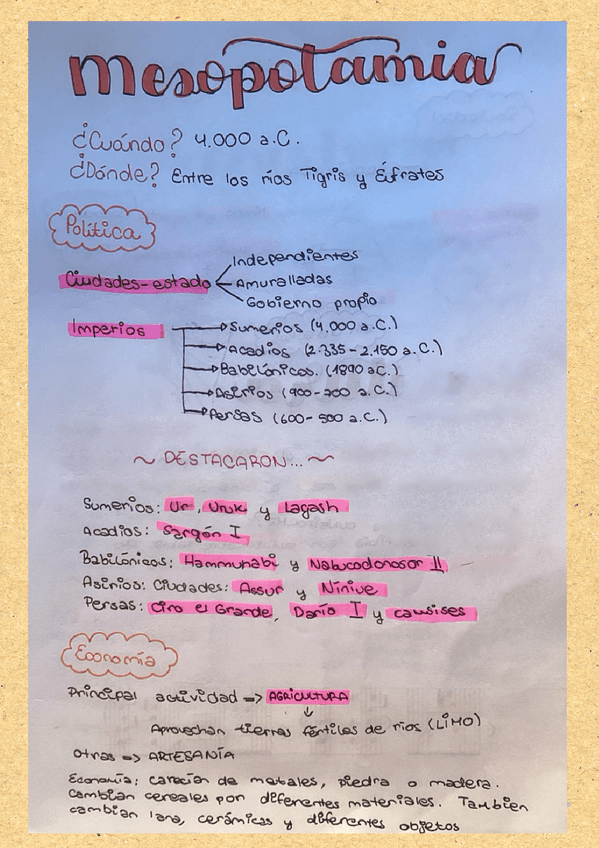 Mesopotamia
¿Cuándo? 4.000 a.C.
¿Dónde? Entre los ríos Tigris y Éufrates
Política
Ciudades-estado
Independientes
Amuralladas
Gobierno propio
Imperios
Sumerios (4.000 a.C.)
Acadios (2.335-2.150 a.C.)
Babilónicos. (1890 a.C.)
Asirios (900-200 a.C.)
Persas (600-500 a.C.)
~ DESTACARON... ~
Sumerios: Ur, Uruk y Lagash
Acadios: Sargón I
Babilónicos: Hammurabi y Nabucodonosor II
Asirios: Ciudades: Assur y Nínive
Persas: Ciro el Grande, Darío I y
Economía
Principal actividad => AGRICULTURA
Aprovechan tierras fértiles de ríos (LIMO)
Otras => ARTESANÍA
Economía: carecían de metales, piedra o madera.
Cambian cereales por diferentes materiales. También
cambian lana, cerámicas y diferentes objetos